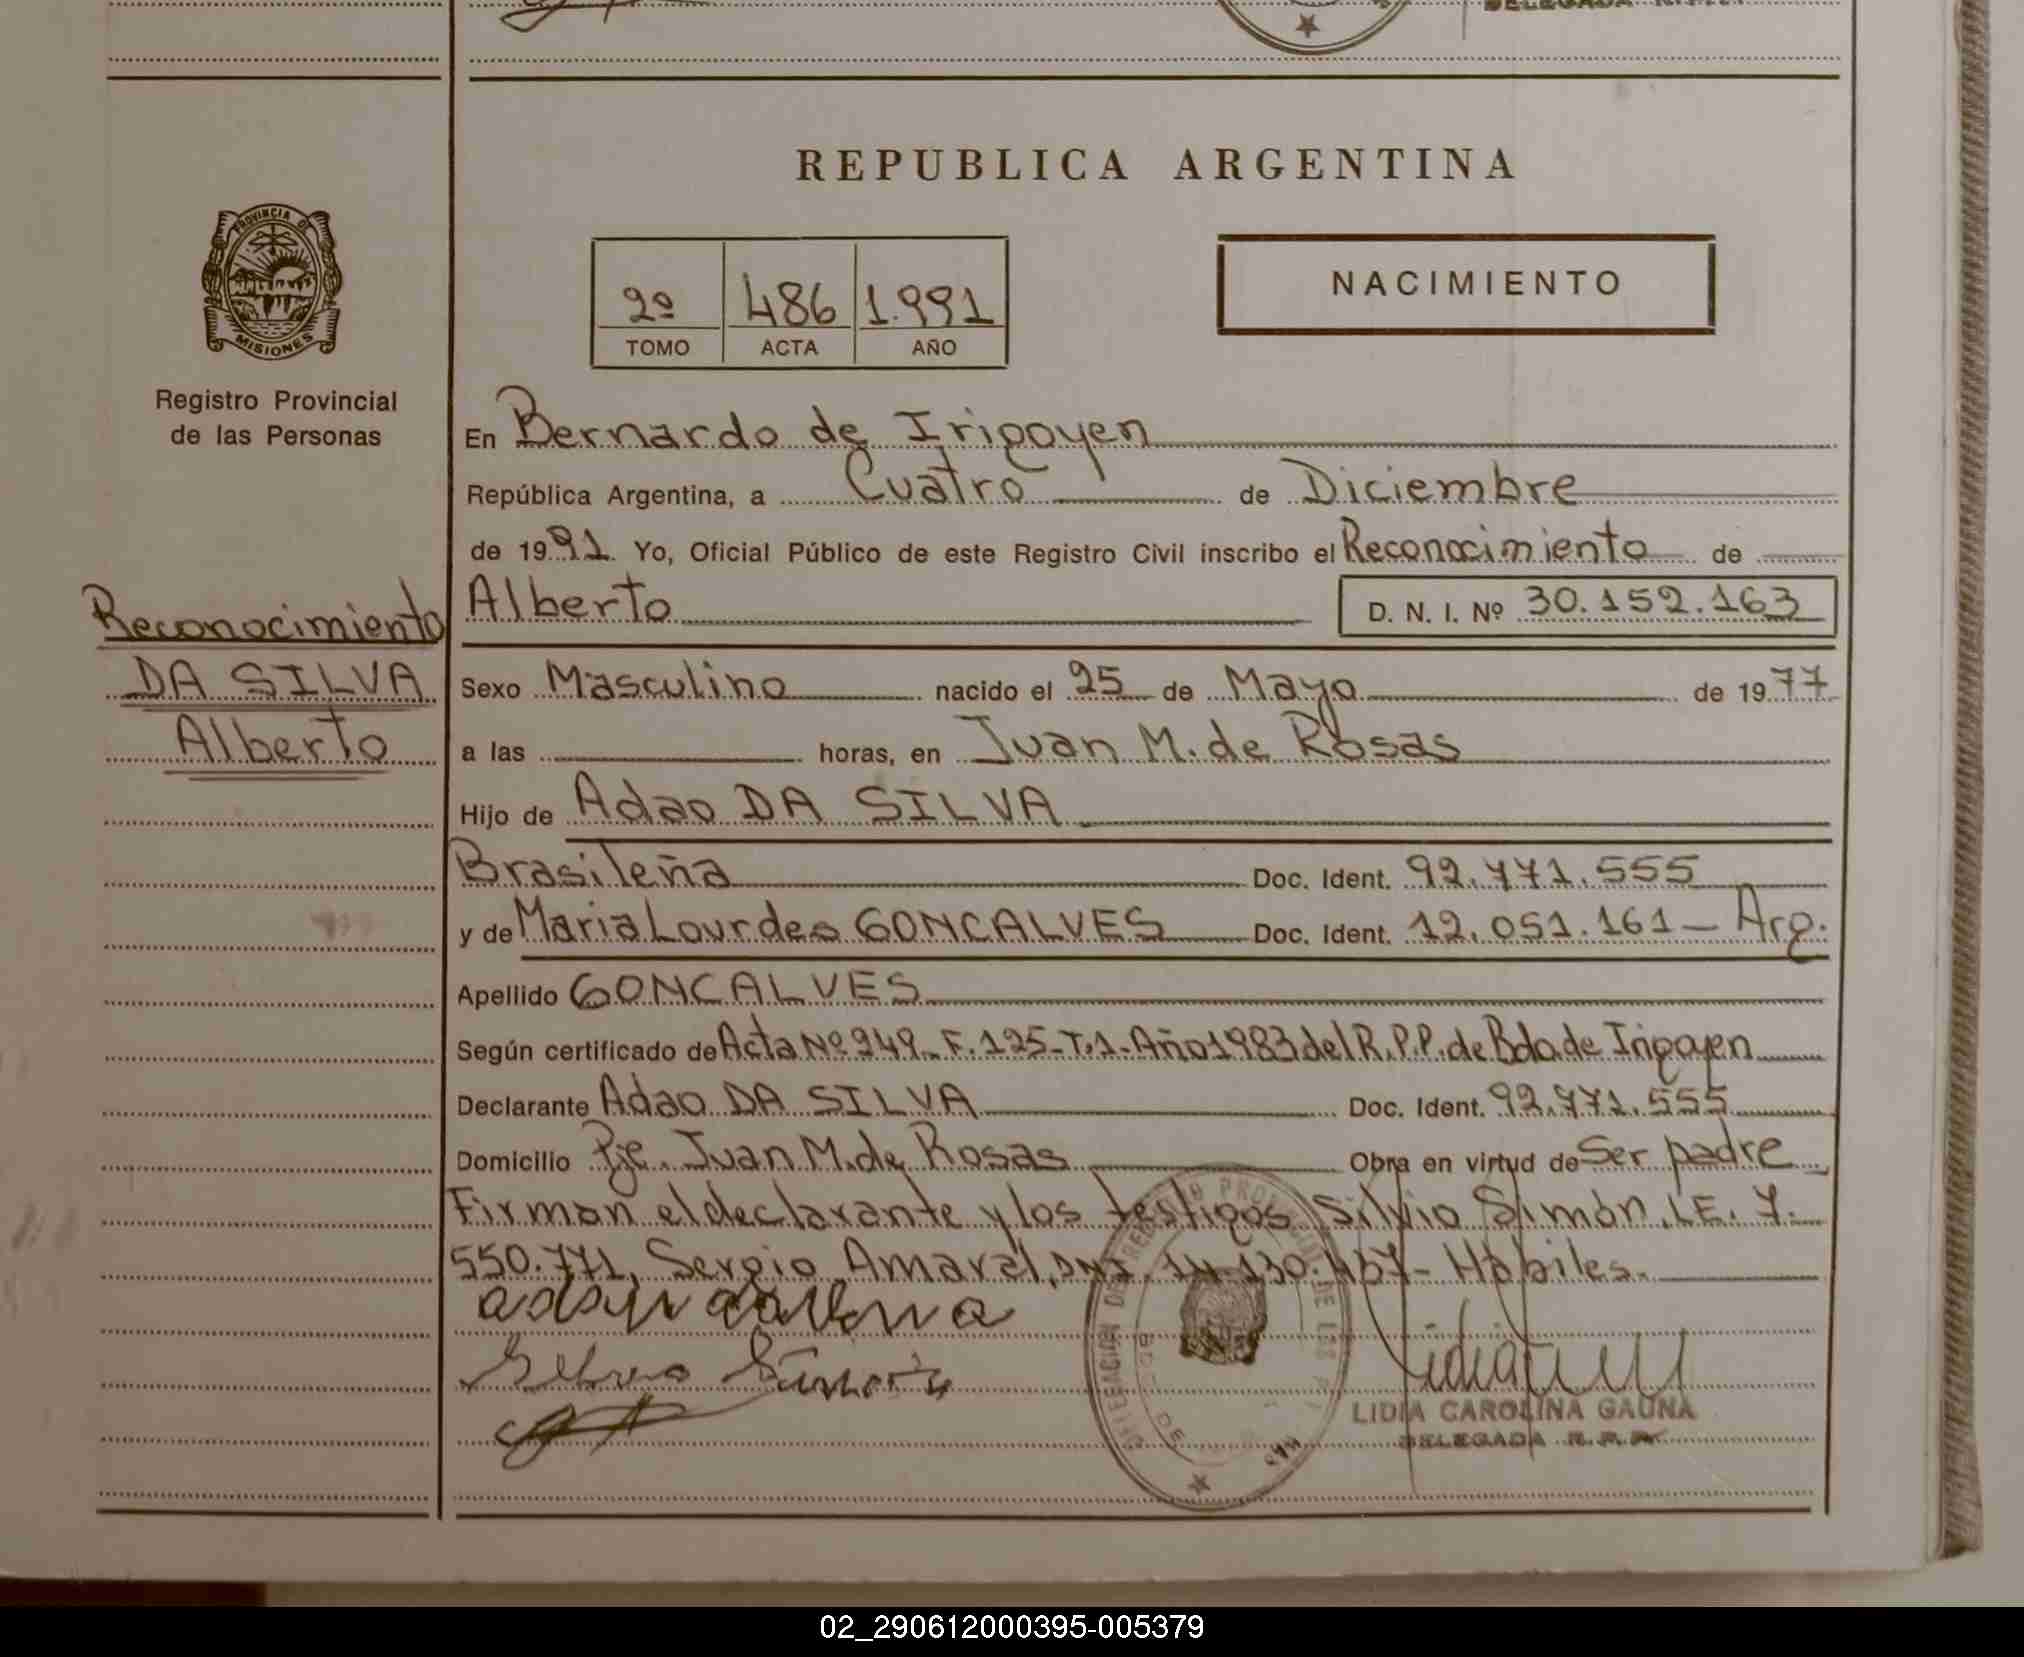 REPUBLICA ARGENTINA
PROVINCIA DE
MISIONES
Registro Provincial
de las Personas
2º 486 1.991
TOMO ACTA AÑO
NACIMIENTO
En Bernardo de Irigoyen
República Argentina, a Cuatro de Diciembre
de 1991. Yo, Oficial Público de este Registro Civil inscribo el Reconocimiento de
Alberto D. N. I. Nº 30.152.163
Reconocimiento
DA SILVA
Alberto
Sexo Masculino nacido el 25 de Mayo de 1977
a las horas, en Juan M. de Rosas
Hijo de Adao DA SILVA
Brasileña Doc. Ident. 92.771.555
y de Maria Lourdes GONCALVES Doc. Ident. 12.051.161 - Arg.
Apellido GONCALVES
Según certificado de Acta Nº 949- F. 125- T. 1- Año 1983 del R.P.P. de Bdo de Irigoyen
Declarante Adao DA SILVA Doc. Ident. 92.771.555
Domicilio Pje. Juan M. de Rosas Obra en virtud de Ser padre
Firman el declarante y los testigos Silvio Simón, L.E. 7.
550.771, Sergio Amaral, DNI. 14.130.467- Hábiles.
LIDIA CAROLINA GAUNA
DELEGADA R.P.P.
02_290612000395-005379